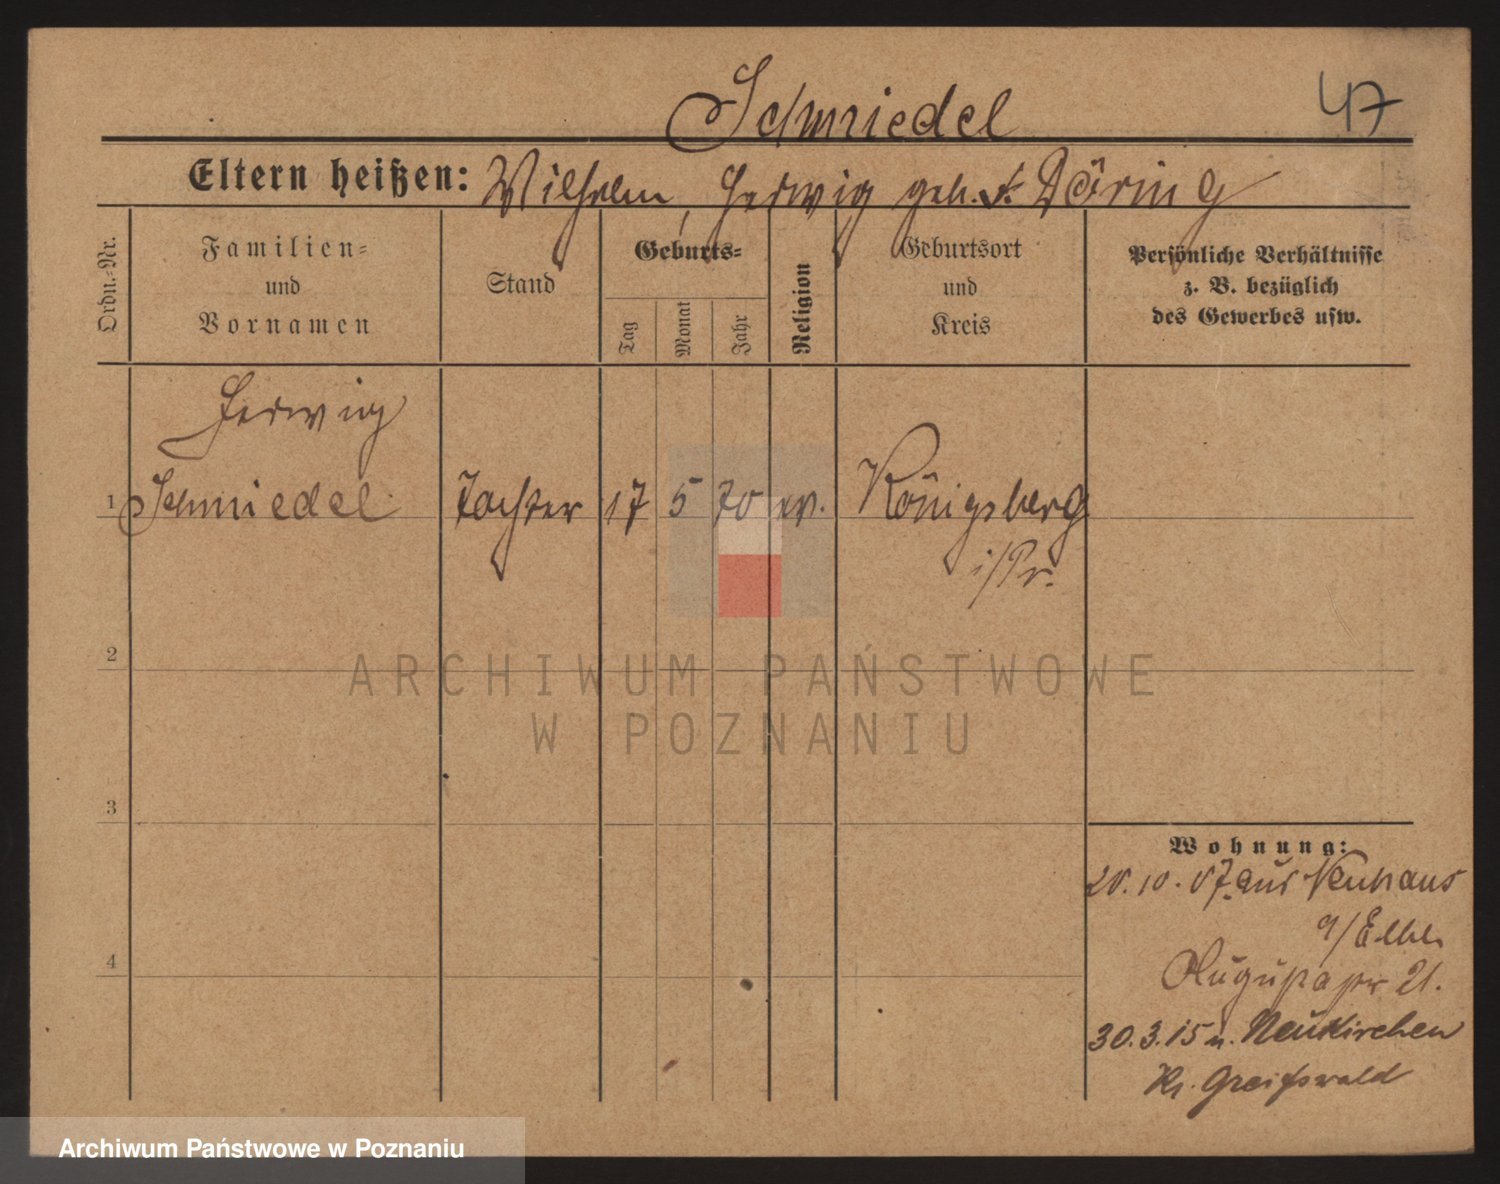 Schmiedel
47
Eltern heißen: Wilhelm, Hedwig geb. Döring
Ordn.-Nr.
Familien-
und
Vornamen
Stand
Geburts-
Tag
Monat
Jahr
Religion
Geburtsort
und
Kreis
Persönliche Verhältnisse
z. B. bezüglich
des Gewerbes usw.
Hedwig
1 Schmiedel Tochter 17 5 70 ev. Königsberg
i/Pr.
2
3
4
Wohnung:
28.10.07. aus Neuhaus
a/Elbe
Augustastr 21.
30.3.15 n. Neukirchen
Kr. Greifswald
ARCHIWUM PAŃSTWOWE
W POZNANIU
Archiwum Państwowe w Poznaniu